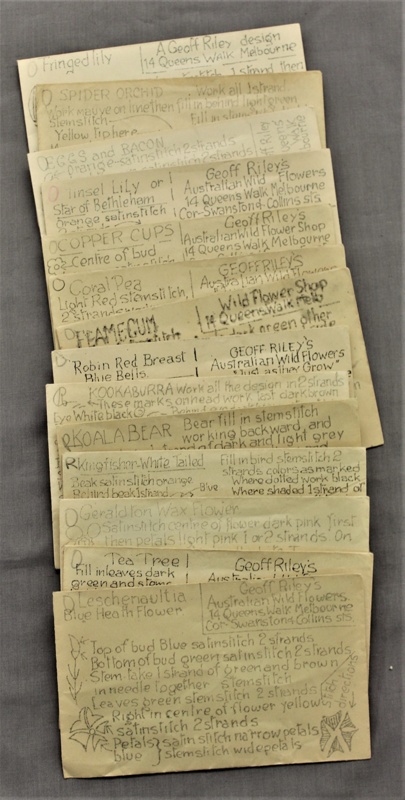 O Fringed lily
A Geoff Riley design
14 Queens Walk Melbourne
1 strand then
O SPIDER ORCHID
Work all 1 strand.
Work mauve on line then fill in behind light green
Stemstitch
Yellow tip here
Fill in
O EGGS and BACON
satinstitch 2 strands
O Tinsel Lily or
Star of Bethlehem
orange satinstitch
Geoff Riley's
Australian Wild Flowers
14 Queens Walk Melbourne
Cor-Swanston & Collins sts
O COPPER CUPS
Centre of bud
Geoff Riley's
Australian Wild Flower Shop
14 Queens Walk Melbourne
O Coral Pea
Light Red stemstitch,
2 strands
GEOFF RILEY'S
Australian Wild Flowers
FLAMEGUM
Wild Flower Shop
14 Queens Walk Melb
dark green other
Robin Red Breast
Blue Bells.
GEOFF RILEY'S
Australian Wild Flowers
Just as they Grow
R KOOKABURRA work all the design in 2 strands
These marks on head work last dark brown
Eye White black
R KOALA BEAR
Bear fill in stemstitch
working backward, and
strand of dark and light grey
R Kingfisher-White Tailed
Beak satinstitch orange
Behind beak 1 strand
Blue
Fill in bird stemstitch 2
strands colors as marked
where dotted work black
Where shaded 1 strand of
O Geraldton Wax Flower
Satinstitch centre of flower dark pink first
then petals light pink 1 or 2 strands. On
O Tea Tree
Fill in leaves dark
green and stems
Geoff Riley's
O Leschenaultia
Blue Heath Flower
Geoff Riley's
Australian Wild Flowers
14 Queens Walk Melbourne
Cor-Swanston & Collins sts.
Top of bud Blue satinstitch 2 strands
Bottom of bud green satinstitch 2 strands
Stem take 1 strand of Green and brown
in needle together stemstitch
Leaves green stemstitch 2 strands
Stitch directions
Right in centre of flower yellow
satinstitch 2 strands
Petals } satin stitch narrow petals
blue } stemstitch wide petals